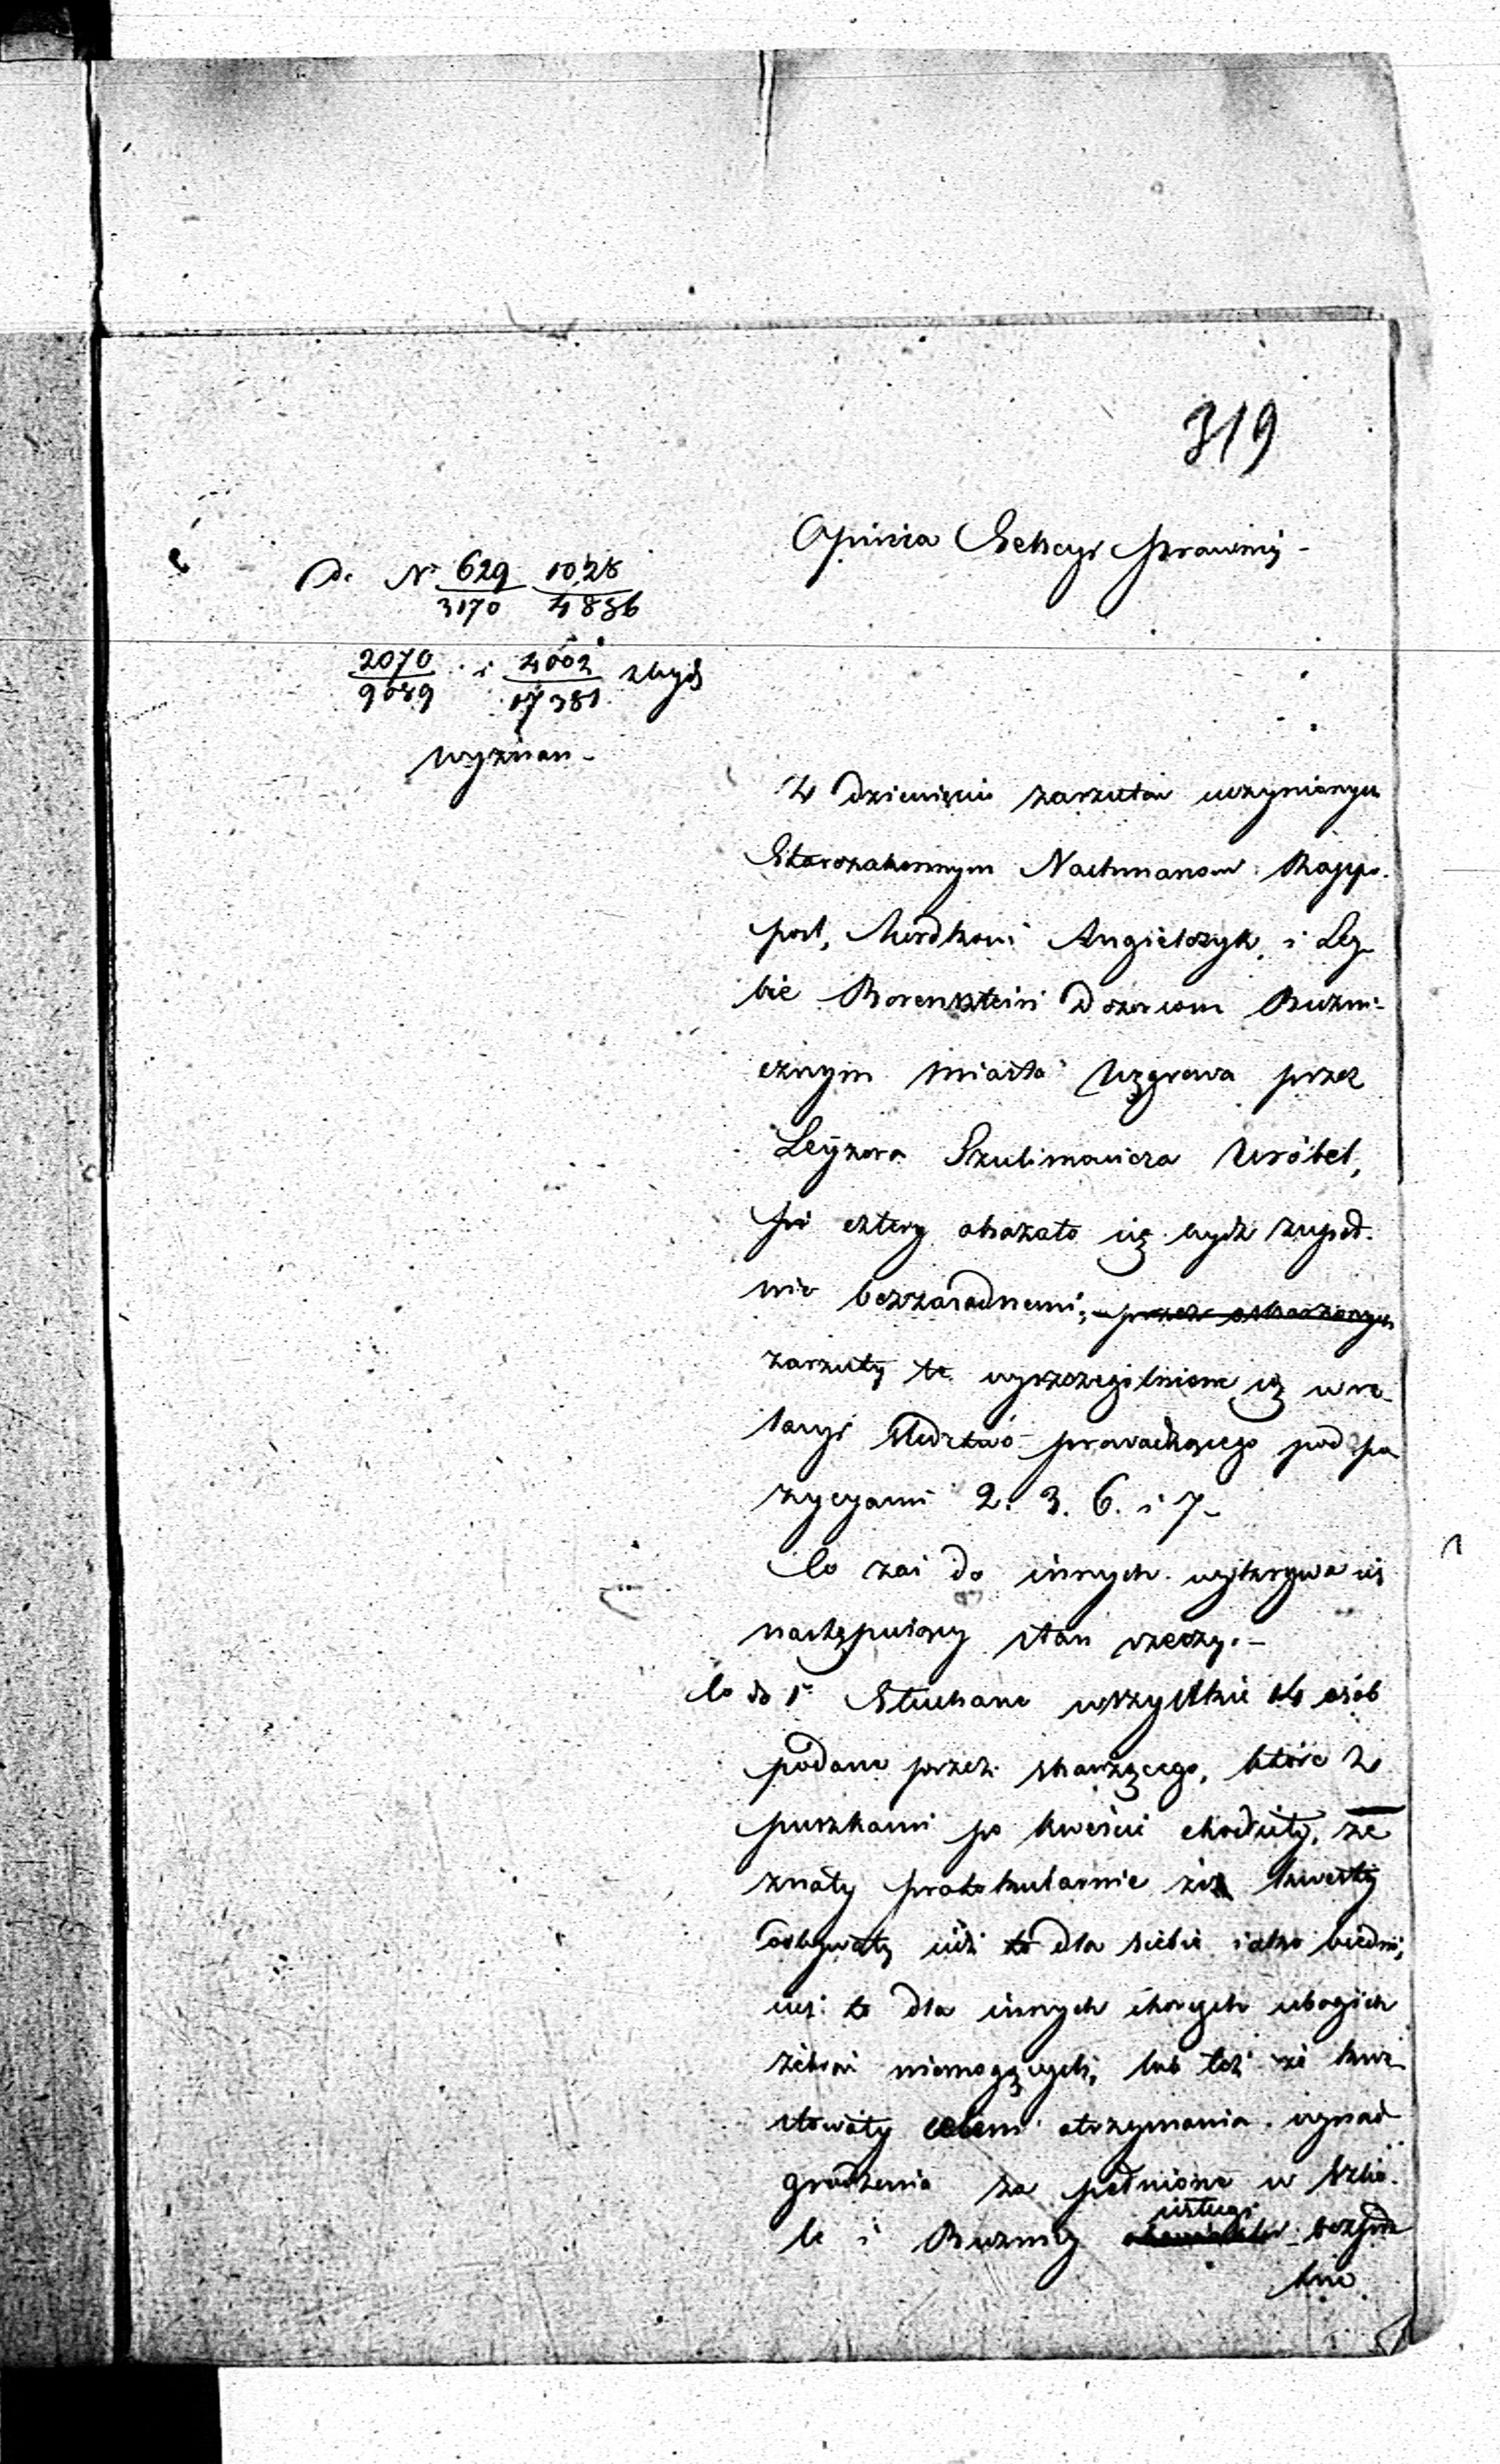 319
Opinia Sekcyi prawnéj -
Do No 629/3170 1028/4836
2070/9089 i 4002/17381 z Wydz
wyznan -
Z dziewięciu zarzutów uczynionych
Starozakonnym Nachmanowi Rappo-
port, Mordkowi Angielczyk, i Ley-
bie Borensztein Dozorcom Bużni-
cznym miasta Węgrowa przez
Leyzora Szulimowicza Wróbel,
pei cztery okazało się bydź zupeł-
nie bezzasadnemi; przez oskarzonych
zarzuty te wyszczególnione są w re-
lacyi śledztwo prowadzącego pod po
zycyami 2. 3. 6. i 7 -
Co zaś do innych wykrywa się
następuiący stan rzeczy. -
Co do 1o Słuchane wszystkie 14 osób
podane przez skarżącego, które z
puszkami po kweście chodziły, ze
znały protokularnie że kwesty
odbywały iuż to dla siebie iako biedni,
iuż to dla innych chorych ubogich
żebrać niemogących, lub też że kwe
stowały celem otrzymania wynad
grodzenia za pełnione w Szko-
le i Bużnicy usługi bezpła
tne